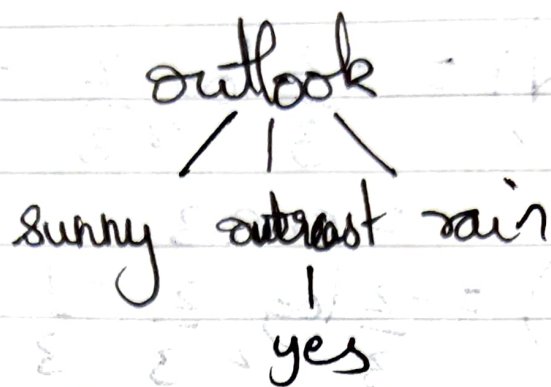 outlook
sunny outcast rain
yes